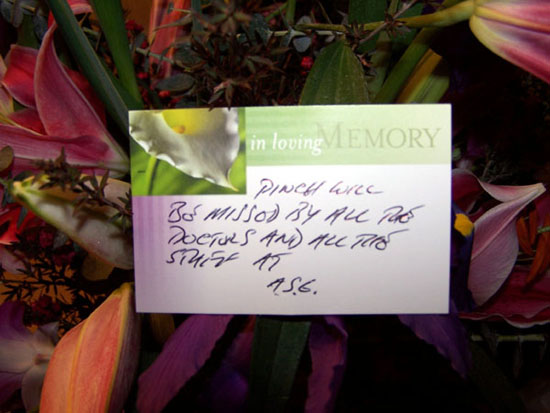 in loving MEMORY
PINCH WILL
BE MISSED BY ALL THE
DOCTORS AND ALL THE
STAFF AT
A.S.G.